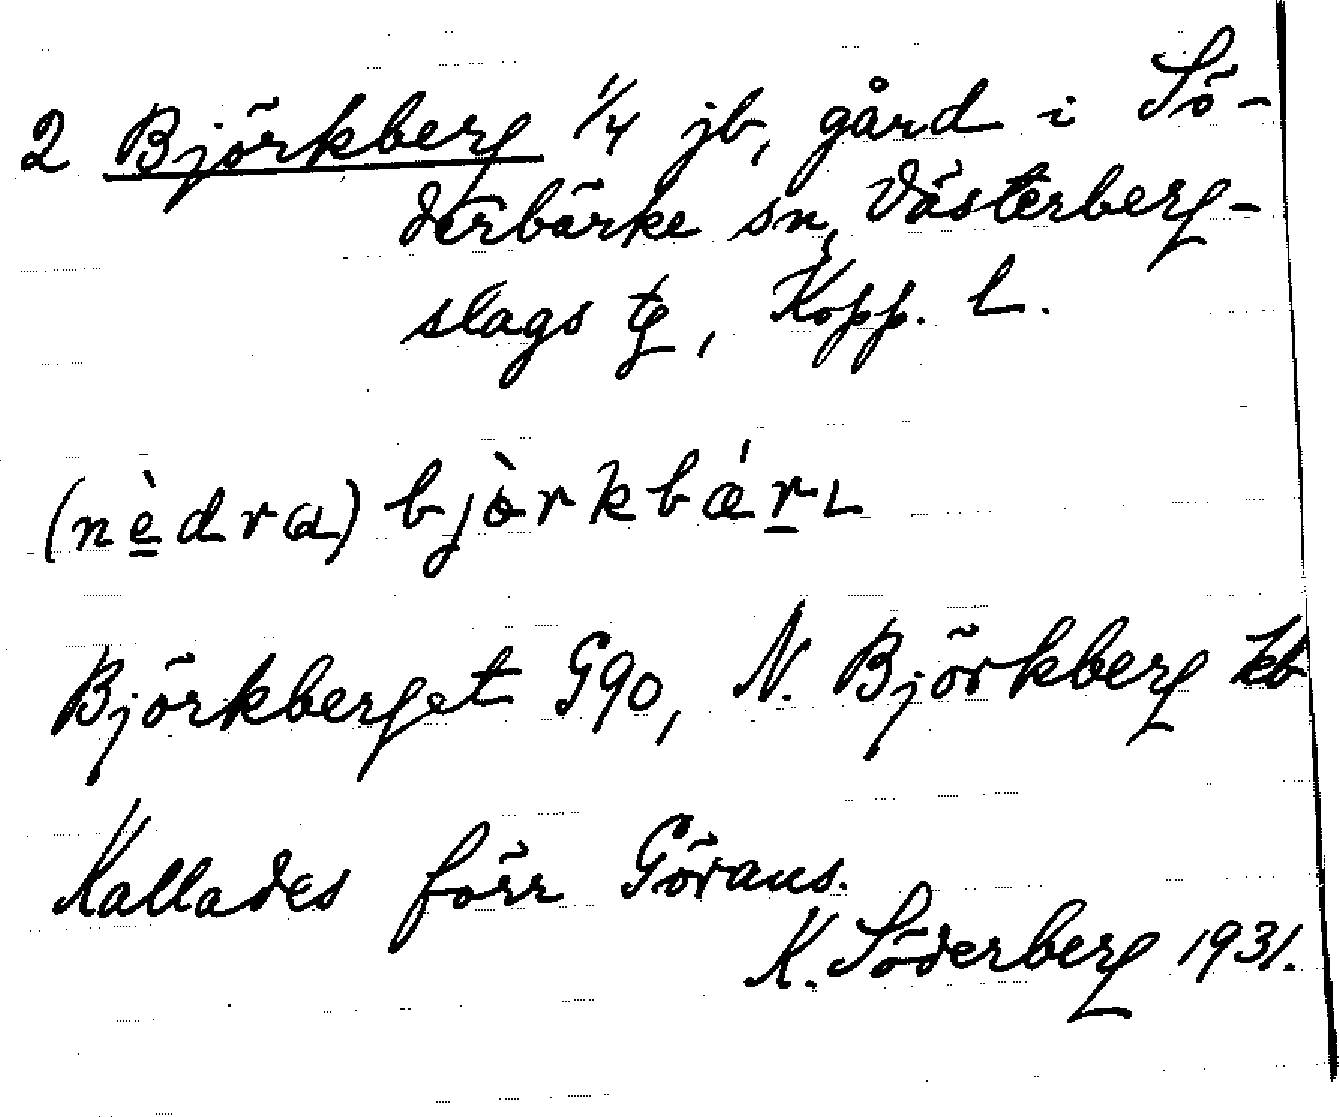 2 Björkberg 1/4 jb, gård i Sö-
derbärke sn, Västerberg-
slags tg, Kopp. l.
(nèdra) bjòrkbǽrɩ
Björkberget G90, N. Björkberg kb
Kallades förr Görans.
K. Söderberg 1931.